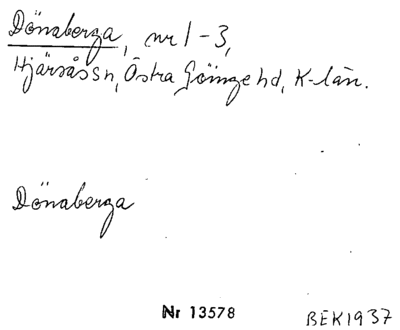 Dönaberga, nr 1-3,
Hjärsås Sn, Östra Göinge hd, K-län.
Dönaberga
Nr 13578
BEK1937